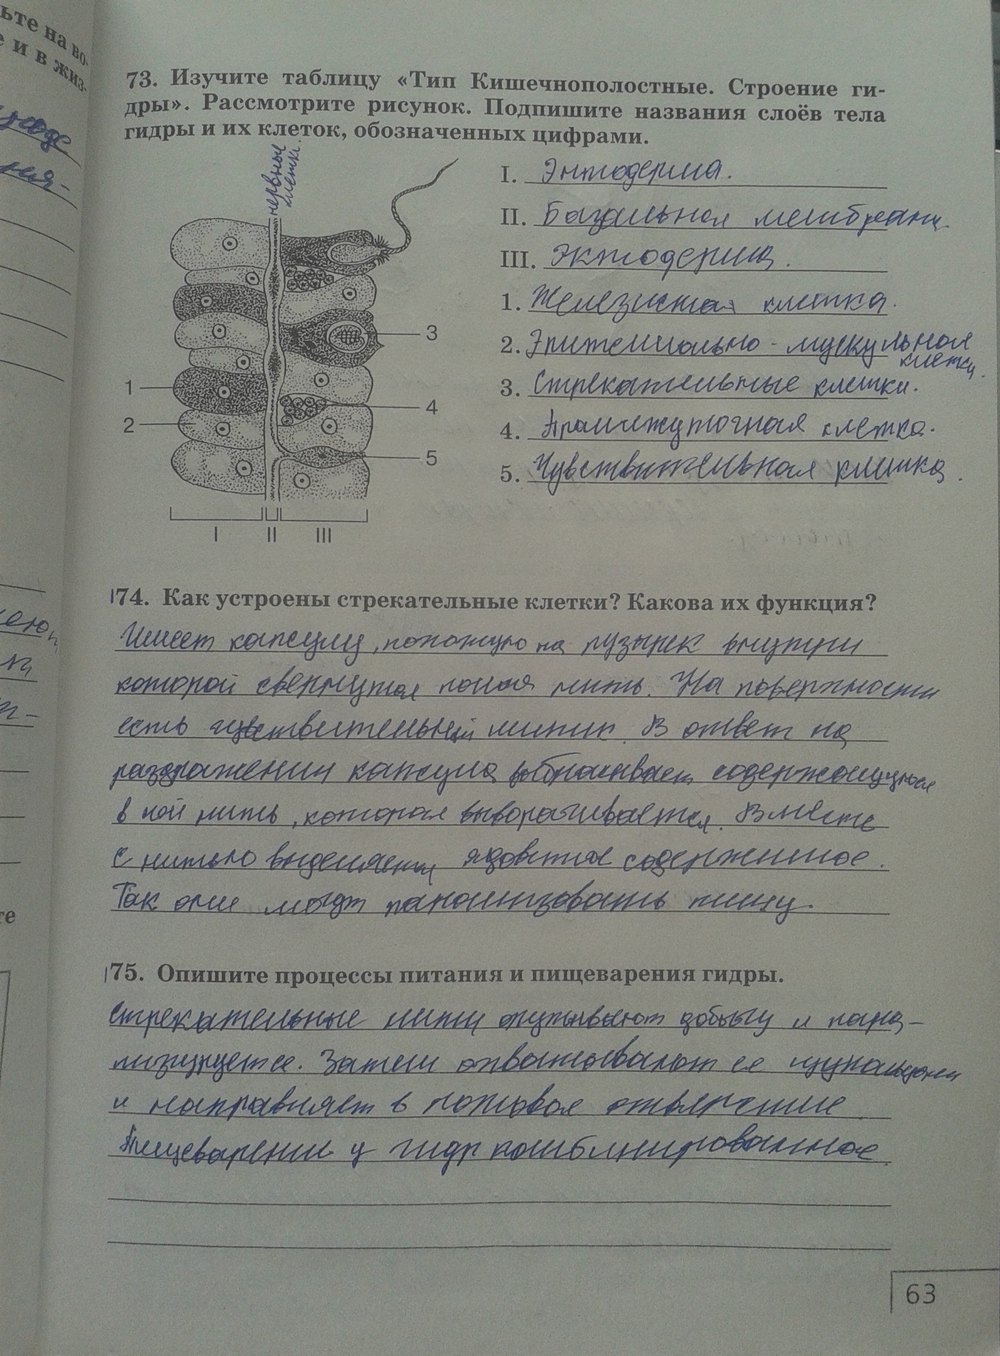 ьте на во-
е и в жиз-
73. Изучите таблицу «Тип Кишечнополостные. Строение ги-
дры». Рассмотрите рисунок. Подпишите названия слоёв тела
гидры и их клеток, обозначенных цифрами.
нервные
клетки.
I. Энтодерма.
II. Базальная мембрана
III. Эктодерма.
1. Железистая клетка.
2. Эпителиально-мускульная
клетка.
3. Стрекательные клетки.
4. Промежуточная клетка.
5. Чувствительная клетка.
3
1
2
4
5
I II III
74. Как устроены стрекательные клетки? Какова их функция?
Имеет капсулу, похожую на пузырек внутри
которой свернутая полая нить. На поверхности
есть чувствительный шипик. В ответ на
раздражении капсула выбрасывает содержащуюся
в ней нить, которая выворачивается. Вместе
с нитью выделяется ядовитое содержимое.
Так они могут парализовать пищу.
75. Опишите процессы питания и пищеварения гидры.
Стрекательные нити опутывают добычу и пара-
лизируется. Затем охватывают ее щупальцами
и направляет в ротовое отверстие
Пищеварение у гидр комбинированное.
63